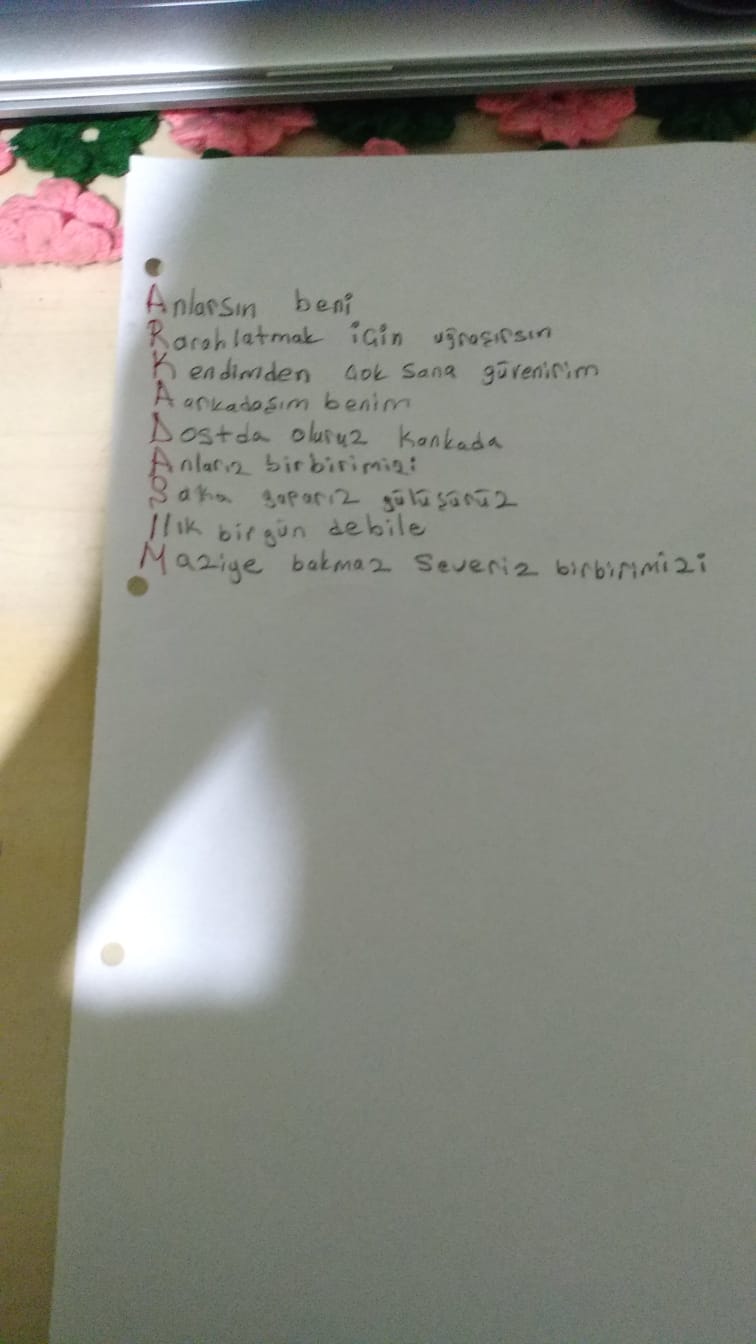 Anlarsın beni
Rarahlatmak için uğraşırsın
Kendimden çok sana güvenirim
Aarkadaşım benim
Dostda oluruz Kankada
Anlarız birbirimizi
Şaka yaparız gülüşürüz
Ilık bir gün debile
Maziye bakmaz Severiz birbirimizi